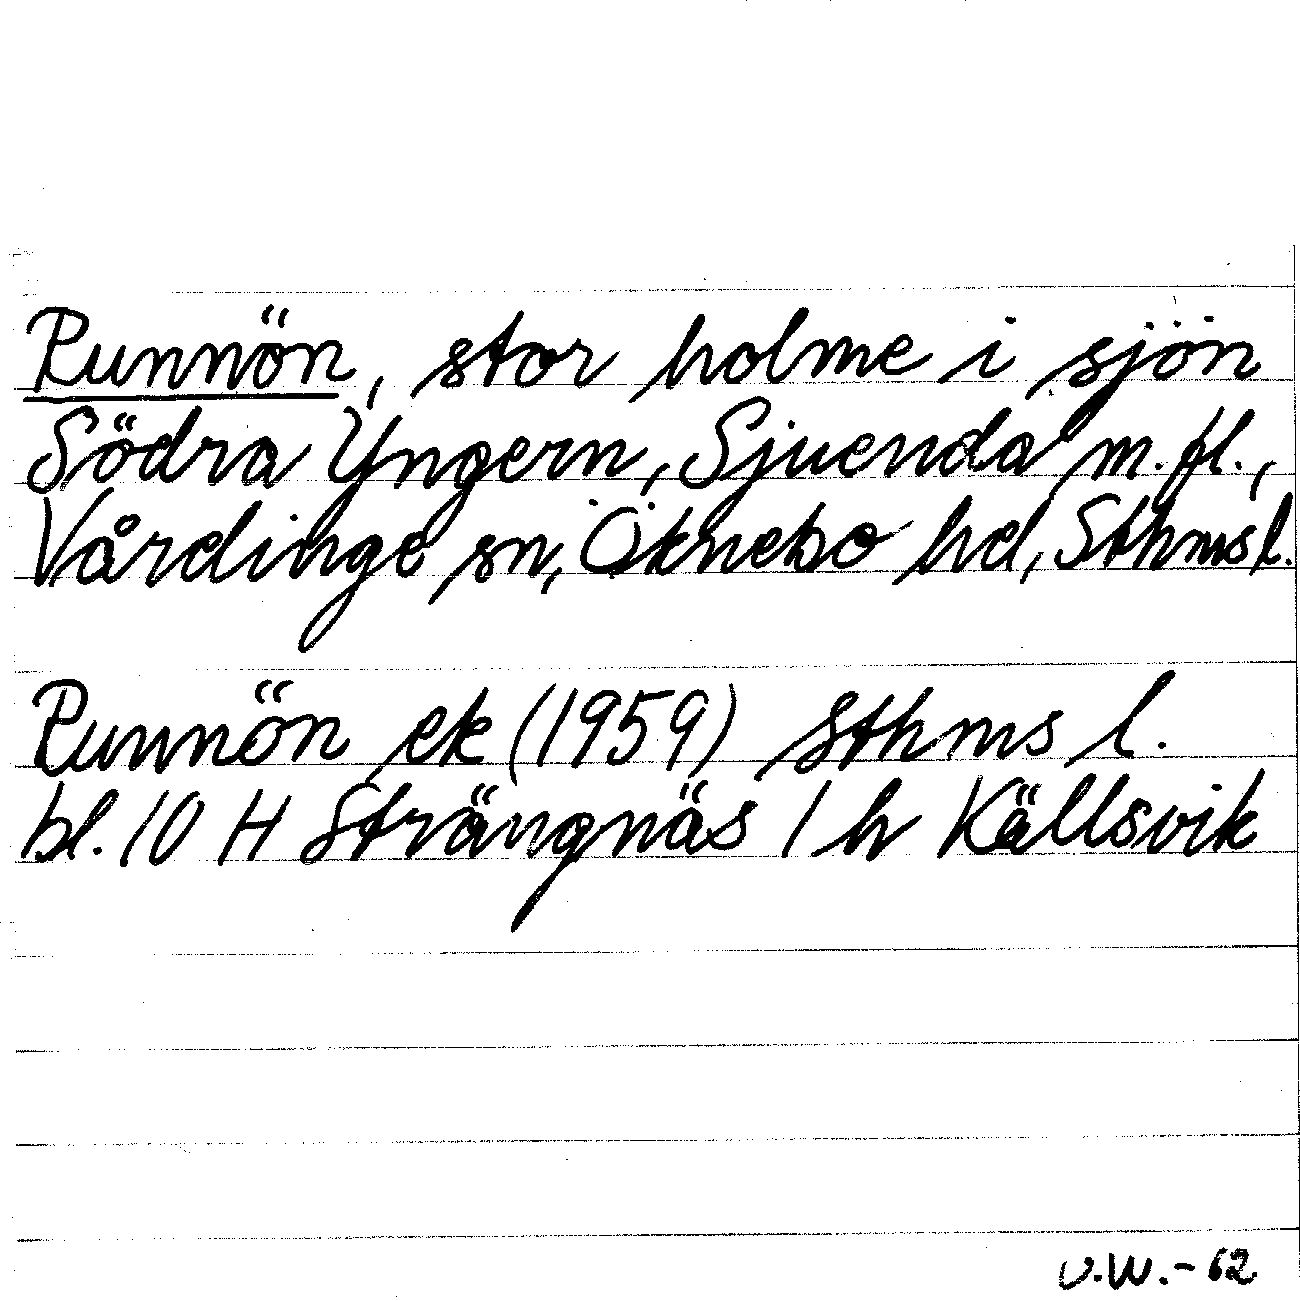 Runnön, stor holme i sjön
Södra Yngern, Sjuenda m.fl.,
Vårdinge sn, Öknebo hd, Sthms l.
Runnön ek (1959) Sthms l.
bl. 10 H Strängnäs 1 h Källsvik
V.W.-62